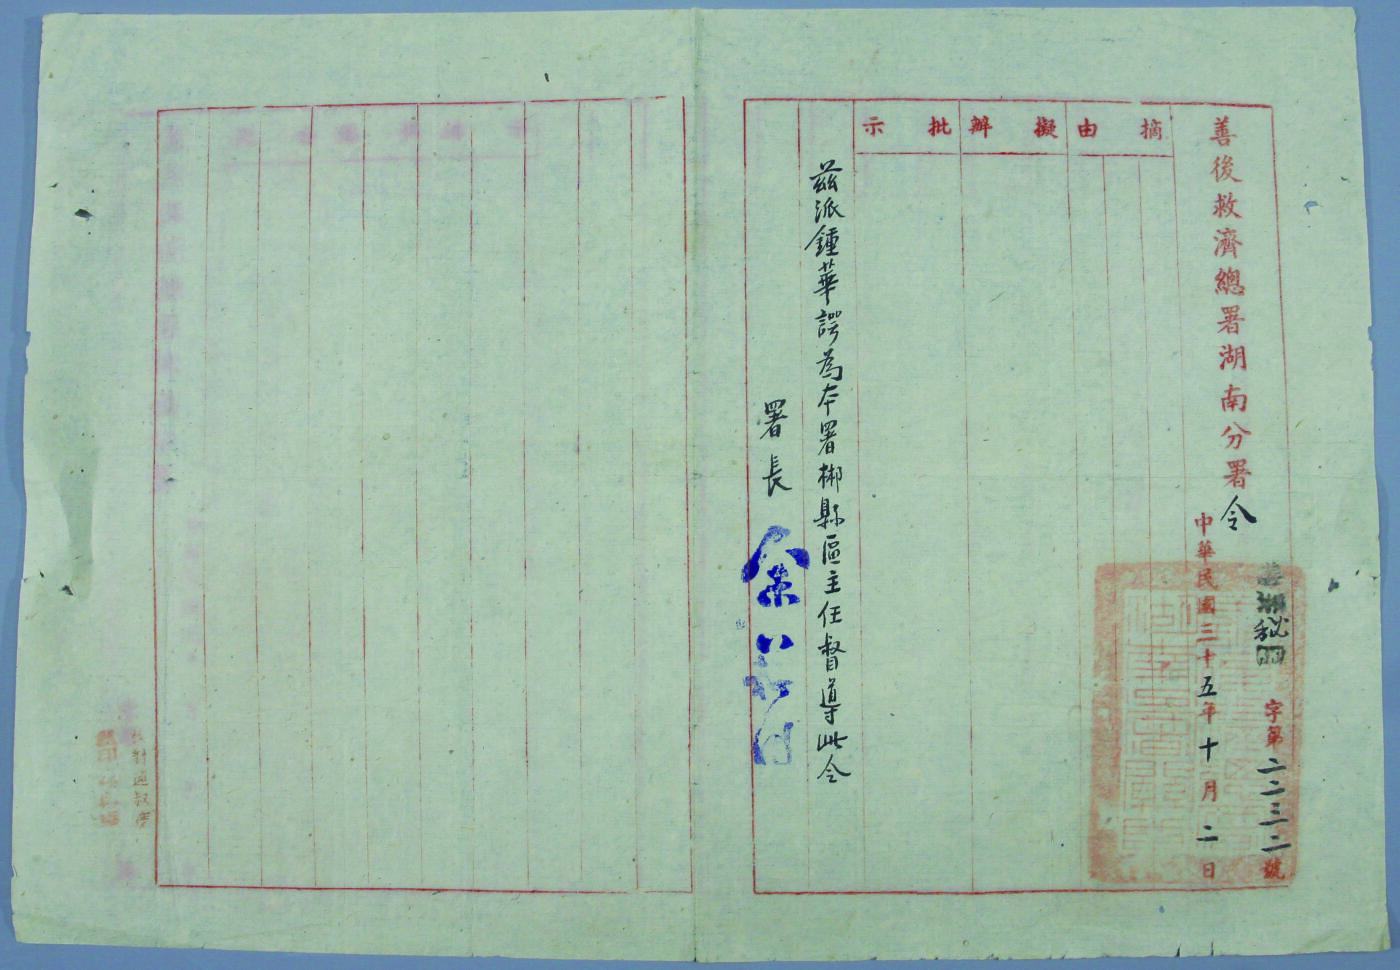 善後救濟總署湖南分署令
字第二二三二號
中華民國三十五年十一月二日
摘由
擬辦
批示
茲派鍾華諤為本署郴縣區主任督導此令
署長 余